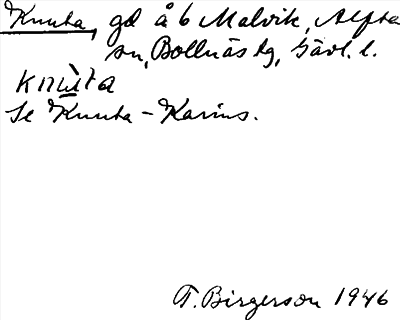 Knuta, gd å 6 Malvik, Alfta
sn, Bollnäs tg, Gävl. l.
knùta
Se Knuta-Karins.
T. Birgerson 1946